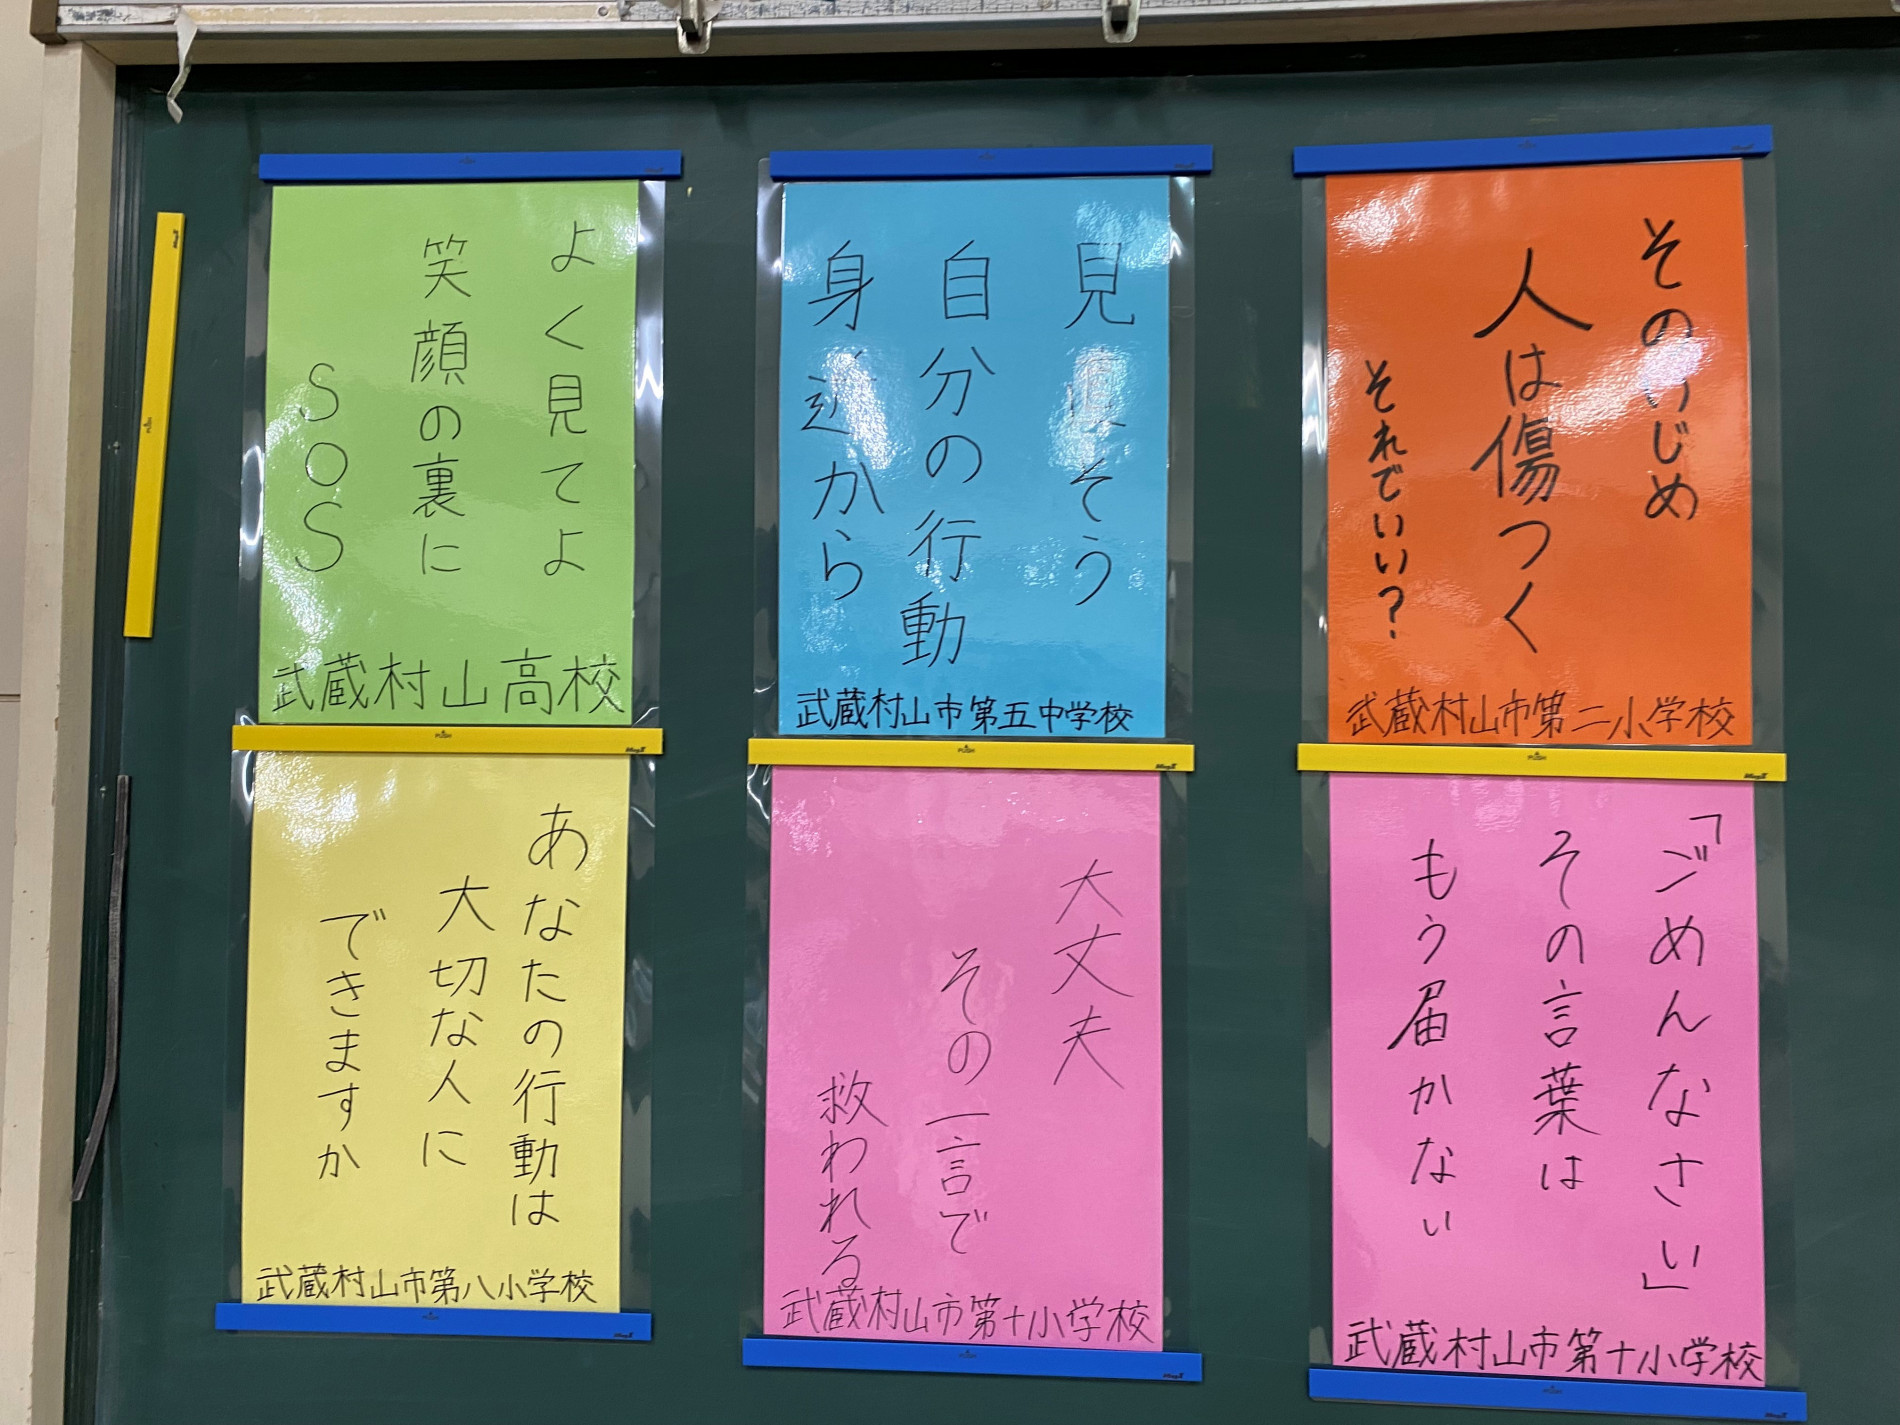 そのいじめ
人は傷つく
それでいい?
武蔵村山市第二小学校
見直そう
自分の行動
身近から
武蔵村山市第五中学校
よく見てよ
笑顔の裏に
SOS
武蔵村山高校
「ごめんなさい」
その言葉は
もう届かない
武蔵村山市第十小学校
大丈夫
その一言で
救われる
武蔵村山市第十小学校
あなたの行動は
大切な人に
できますか
武蔵村山市第八小学校